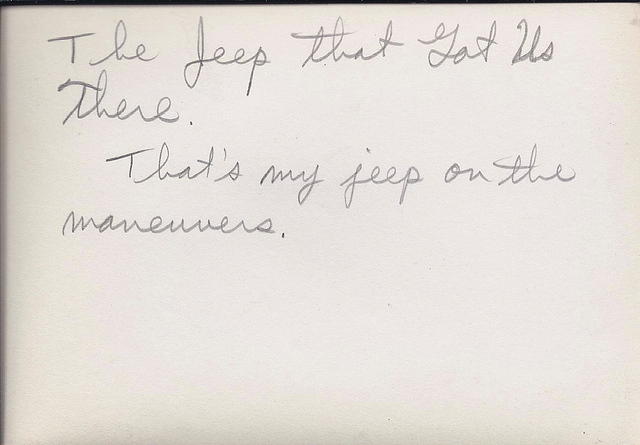 The Jeep that Got Us
There.
That's my jeep on the
maneuvers.